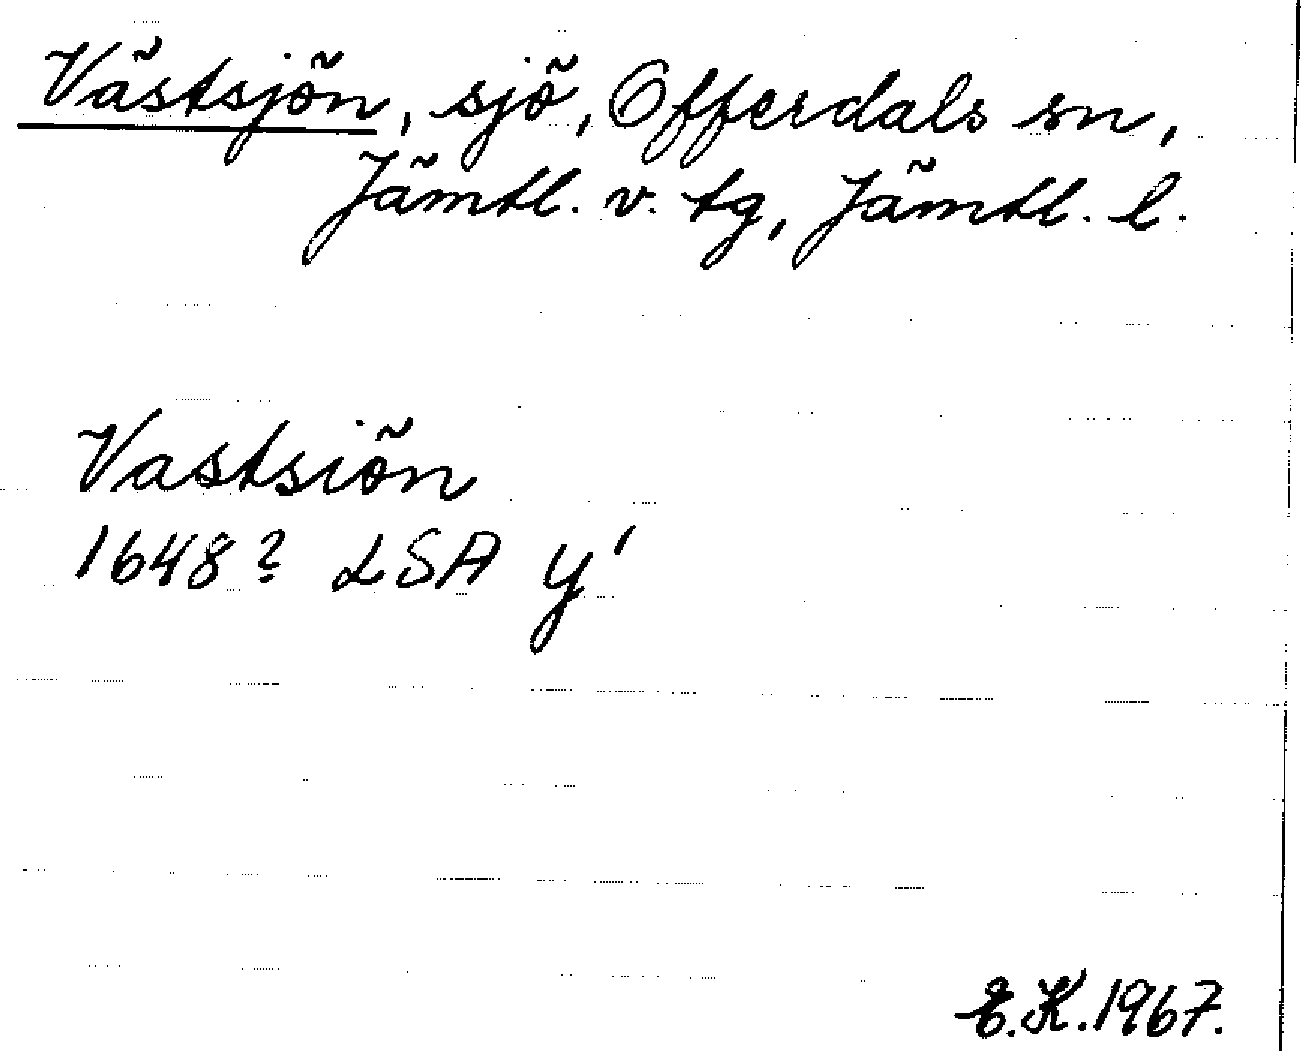 Västsjön, sjö, Offerdals sn,
Jämtl. v. tg, Jämtl. l.
Vastsiön
1648? LSA y'
E.K. 1967.